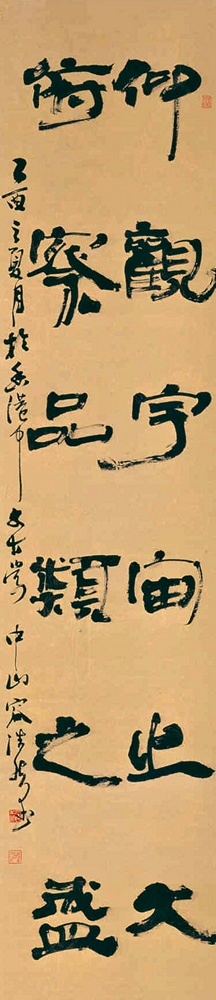 仰觀宇宙之大
俯察品類之盛
乙酉之夏月於香港中文大 中山容浩然書